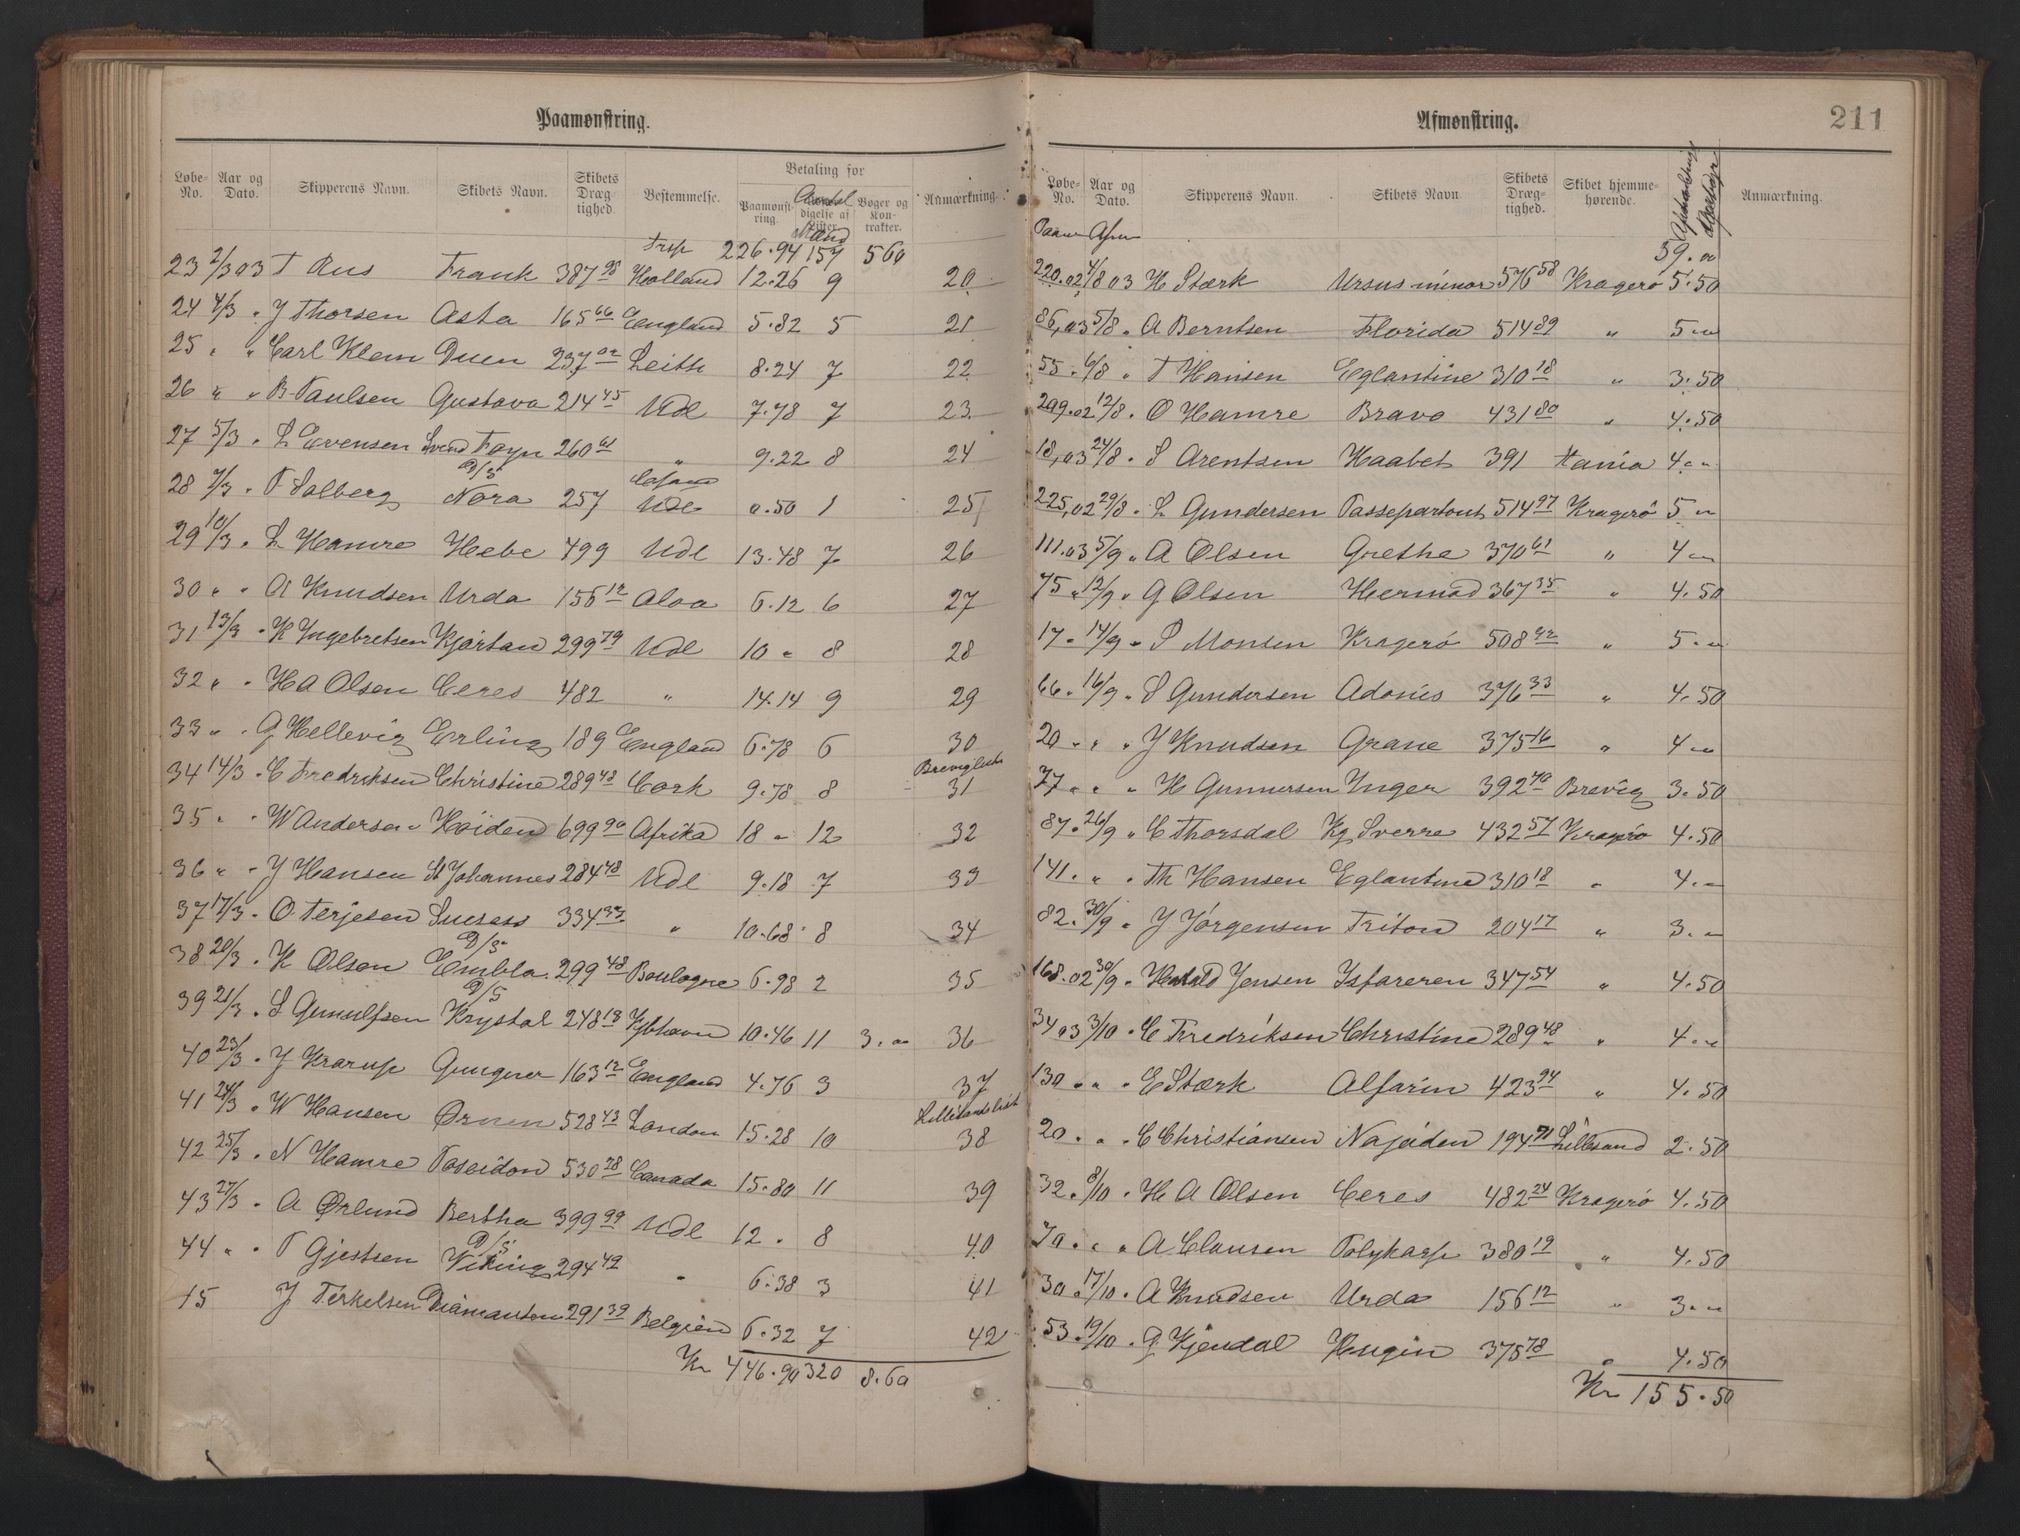 Paamønstring.
Løbe-No. Aar og Dato. Skipperens Navn. Skibets Navn. Skibets Dræg-tighed. Bestemmelse. Betaling for Paamønst-ring. Antal digelse af Lister Mand Bøger og Kon-trakter. Anmærkning.
Trsp 226.94 157 5 60
23 2/3 03 T Aus Frank 387 98 Holland 12.26 9 20
24 4/3 " J Thorsen Asta 165 66 England 5.82 5 21
25 " " Carl Klem Duen 237 02 Leith 8.24 7 22
26 " " B Paulsen Gustava 214 45 Udl 7.78 7 23
27 5/3 " L Evensen Svend Foyn 260 61 " 9.22 8 24
28 7/3 " T Solberg D/S Nora 257 Udl 0.50 1 25
29 10/3 " L Hamre Hebe 499 Udl 13.48 7 26
30 " " A Knudsen Urda 156 12 Aloa 6.12 6 27
31 13/3 " K Ingebretsen Kjartan 299 79 Udl 10 " 8 28
32 " " H A Olsen Ceres 482 " 14.14 9 29
33 " " G Hellevig Erling 189 England 6.78 6 30
34 14/3 " C Fredriksen Christine 289 48 Cork 9.78 8 Breviglist 31
35 " " W Andersen Høiden 699 90 Afrika 18 " 12 32
36 " " J Hansen St Johannes 284 48 Udl 9.18 7 33
37 17/3 " O Terjesen Sucsess 334 " 10.68 8 34
38 20/3 " K Olsen D/S Embla 299 48 Boulogne 6.98 2 35
39 21/3 " S Gunulfsen D/S Krystal 248 13 Kjbhavn 10.46 11 3." 36
40 23/3 " J Krarup Gungner 163 12 England 4.76 3 37
41 24/3 " W Hansen Ørnen 528 43 London 15.28 10 Lillesandslist 38
42 25/3 " N Hamre Poseidon 530 28 Canada 15.80 11
43 27/3 " A Ørlund Bertha 399 99 Udl 12 " 8 39
44 " " T Gjestsen D/S Viking 294 49 " 6.38 3 40
15 J Terkelsen Diamanten 291 39 Belgien 6.32 7 41
42
Kr 446.90 320 8.60
Afmønstring. 211
Løbe-No. Aar og Dato. Skipperens Navn. Skibets Navn Skibets Dræg-tighed. Skibet hjemme-hørende. Anmærkning.
Paam Afm 59.00
220.02 4/8 03 H Stærk Ursus minor 576 58 Kragerø 5.50
86,03 5/8 " A Berntsen Florida 514 89 " 5 "
55 " 6/8 " T Hansen Eglantine 310 18 " 3.50
299.02 12/8 " O Hamre Bravo 431 80 " 4.50
18,03 24/8 " S Arentsen Haabet 391 4 "
225,02 29/8 " L Gundersen Passepartout 514 97 Kragerø 5 "
111.03 5/9 " A Olsen Grethe 370 61 " 4 "
75 " 12/9 " G Olsen Hermod 367 35 " 4.50
17 " 14/9 " S Monsen Kragerø 508 92 " 5 "
66 " 16/9 " S Gundersen Adonis 376 33 " 4.50
20 " " " J Knudsen Grane 375 16 " 4 "
77 " " " H Gunnersen Inger 392 70 Brevig 3.50
87 " 26/9 " C Thorsdal Kg Sverre 432 57 Kragerø 4.50
141 " " " Th Hansen Eglantine 310 18 " 4 "
82 " 30/9 " J Jørgensen Triton 204 17 " 3 "
168.02 30/9 " Harald Jensen Isfareren 347 54 " 4.50
34 03 3/10 " C Fredriksen Christine 289 48 " 4 "
130 " " " E Stærk Alfarin 423 94 " 4.50
20 " " " C Christiansen Najaden 194 71 Lillesand 2.50
32 " 8/10 " H A Olsen Ceres 482 24 Kragerø 4.50
70 " " " A Clausen Polykarp 380 19 " 4.50
30 " 17/10 " A Knudsen Urda 156 12 " 3 "
53 " 19/10 " G Kjendal Hugin 375 78 " 4.50
Kr 155.50